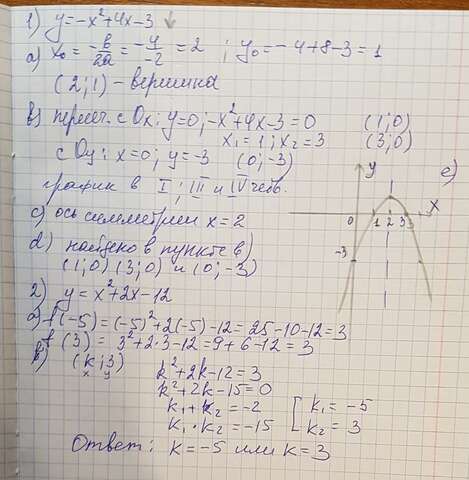 1) y=-x²+4x-3 ↓
a) x₀ = -b/2a = -4/-2 = 2 ; y₀ = -4+8-3 = 1
(2;1) - вершина
b) пересеч. с Ox: y=0; -x²+4x-3=0 (1;0)
x₁=1; x₂=3 (3;0)
с Oy: x=0; y=-3 (0;-3)
график в I; III и IV четв.
c) ось симметрии x=2
d) найдено в пункте b)
(1;0) (3;0) и (0;-3)
e)
y
x
0 1 2 3
-3
2) y=x²+2x-12
a) f(-5)=(-5)²+2(-5)-12=25-10-12=3
f(3) = 3²+2·3-12=9+6-12=3
b) (k;3)
x y
k²+2k-12=3
k²+2k-15=0
k₁+k₂=-2 [ k₁=-5
k₁·k₂=-15 k₂=3
Ответ: k=-5 или k=3